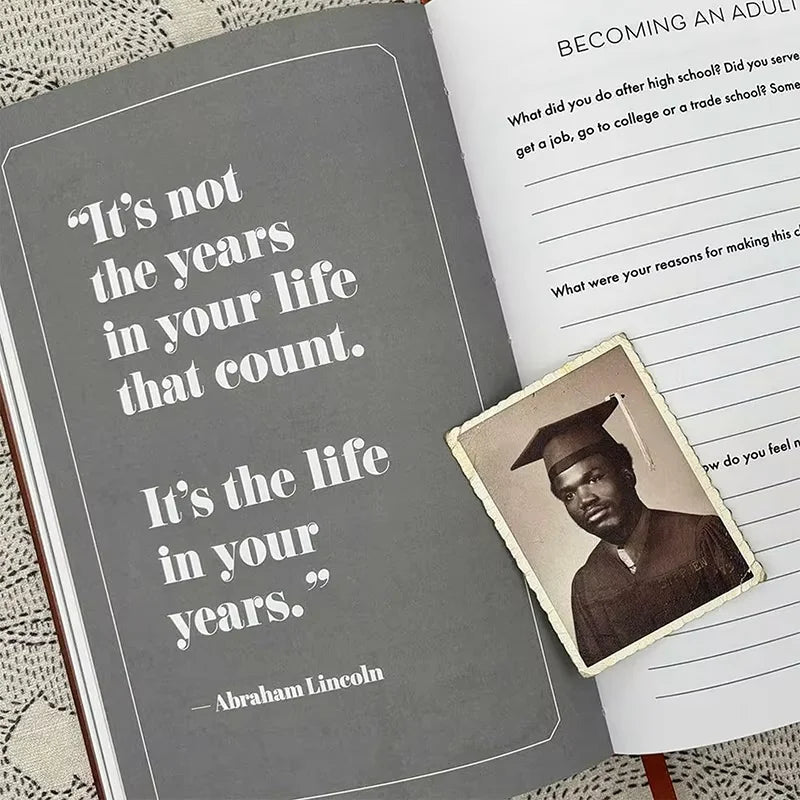 “It’s not
the years
in your life
that count.
It’s the life
in your
years.”
— Abraham Lincoln
BECOMING AN
What did you do after high school? Did you serve
get a job, go to college or a trade school?
What were your reasons for making this
do you feel